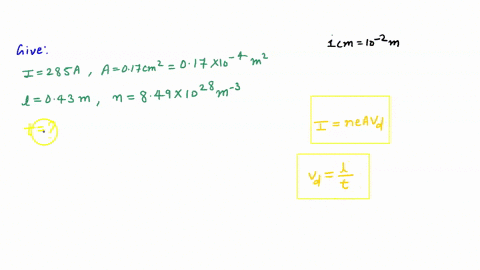 Give:
I = 285A , A = 0.17cm² = 0.17 × 10⁻⁴ m²
l = 0.43 m , n = 8.49 × 10²⁸ m⁻³
t = ?
1 cm = 10⁻² m
I = neAVd
Vd = l/t